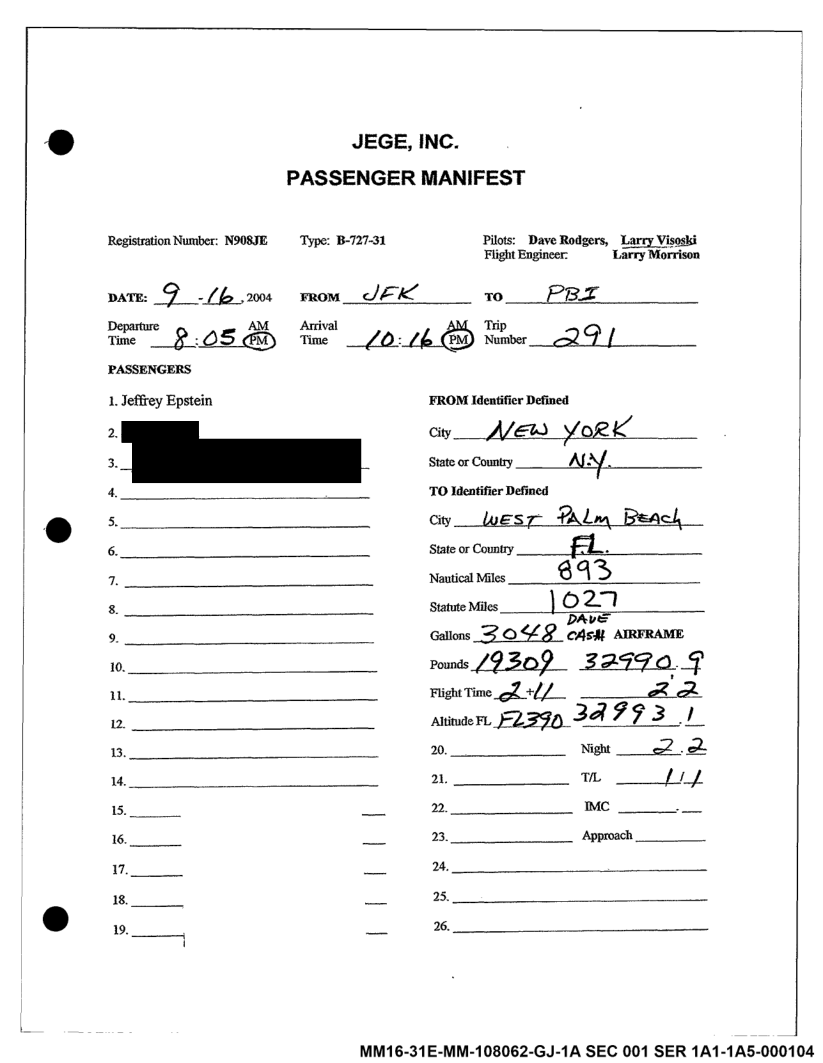 JEGE, INC.
PASSENGER MANIFEST
Registration Number: N908JE Type: B-727-31 Pilots: Dave Rodgers, Larry Visoski
Flight Engineer: Larry Morrison
DATE: 9-16, 2004 FROM JFK TO PBI
Departure Time 8:05 AM PM Arrival Time 10:16 AM PM Trip Number 291
PASSENGERS
1. Jeffrey Epstein
2.
3.
4.
5.
6.
7.
8.
9.
10.
11.
12.
13.
14.
15.
16.
17.
18.
19.
FROM Identifier Defined
City NEW YORK
State or Country N.Y.
TO Identifier Defined
City WEST PALM BEACH
State or Country FL.
Nautical Miles 893
Statute Miles 1027
DAVE
Gallons 3048 CASH AIRFRAME
Pounds 19309 32990.9
Flight Time 2+11 2.2
Altitude FL FL390 32993.1
20. Night 2.2
21. T/L 1/1
22. IMC .
23. Approach
24.
25.
26.
MM16-31E-MM-108062-GJ-1A SEC 001 SER 1A1-1A5-000104